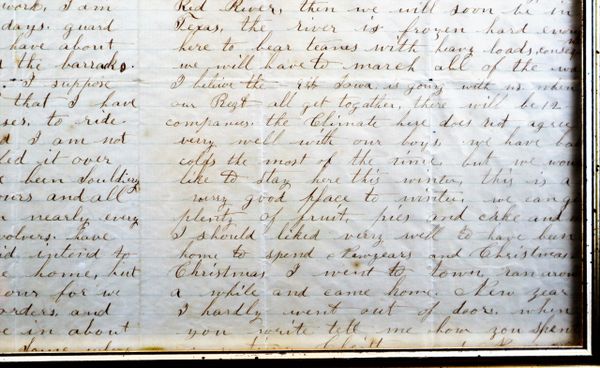 work, I am
days. guard
have about
the barracks.
I suppose
that I have
to ride
I am not
led it over
been Souldiering
ours and all
nearly every
volvers. have
intend to
home, but
our for we
orders, and
in about
Red River, then we will soon be in
Texas, the river is frozen hard
here to bear teames with heavy loads,
we will have to march all of the
I believe the Iowa is going with us. when
our Regt all get together, there will be 12
companies. the Climate here does not agree
verry well with our boys. we have bad
colds the most of the time. but we
like to stay here this winter, this is a
verry good place to winter. we can
plenty of fruit, pies and cake and
I should liked verry well to have been
home to spend Newyears and Christmas
Christmas I went to town, ran
a while and came home. New years
I hardly went out of doors. when
you write tell me how you spent